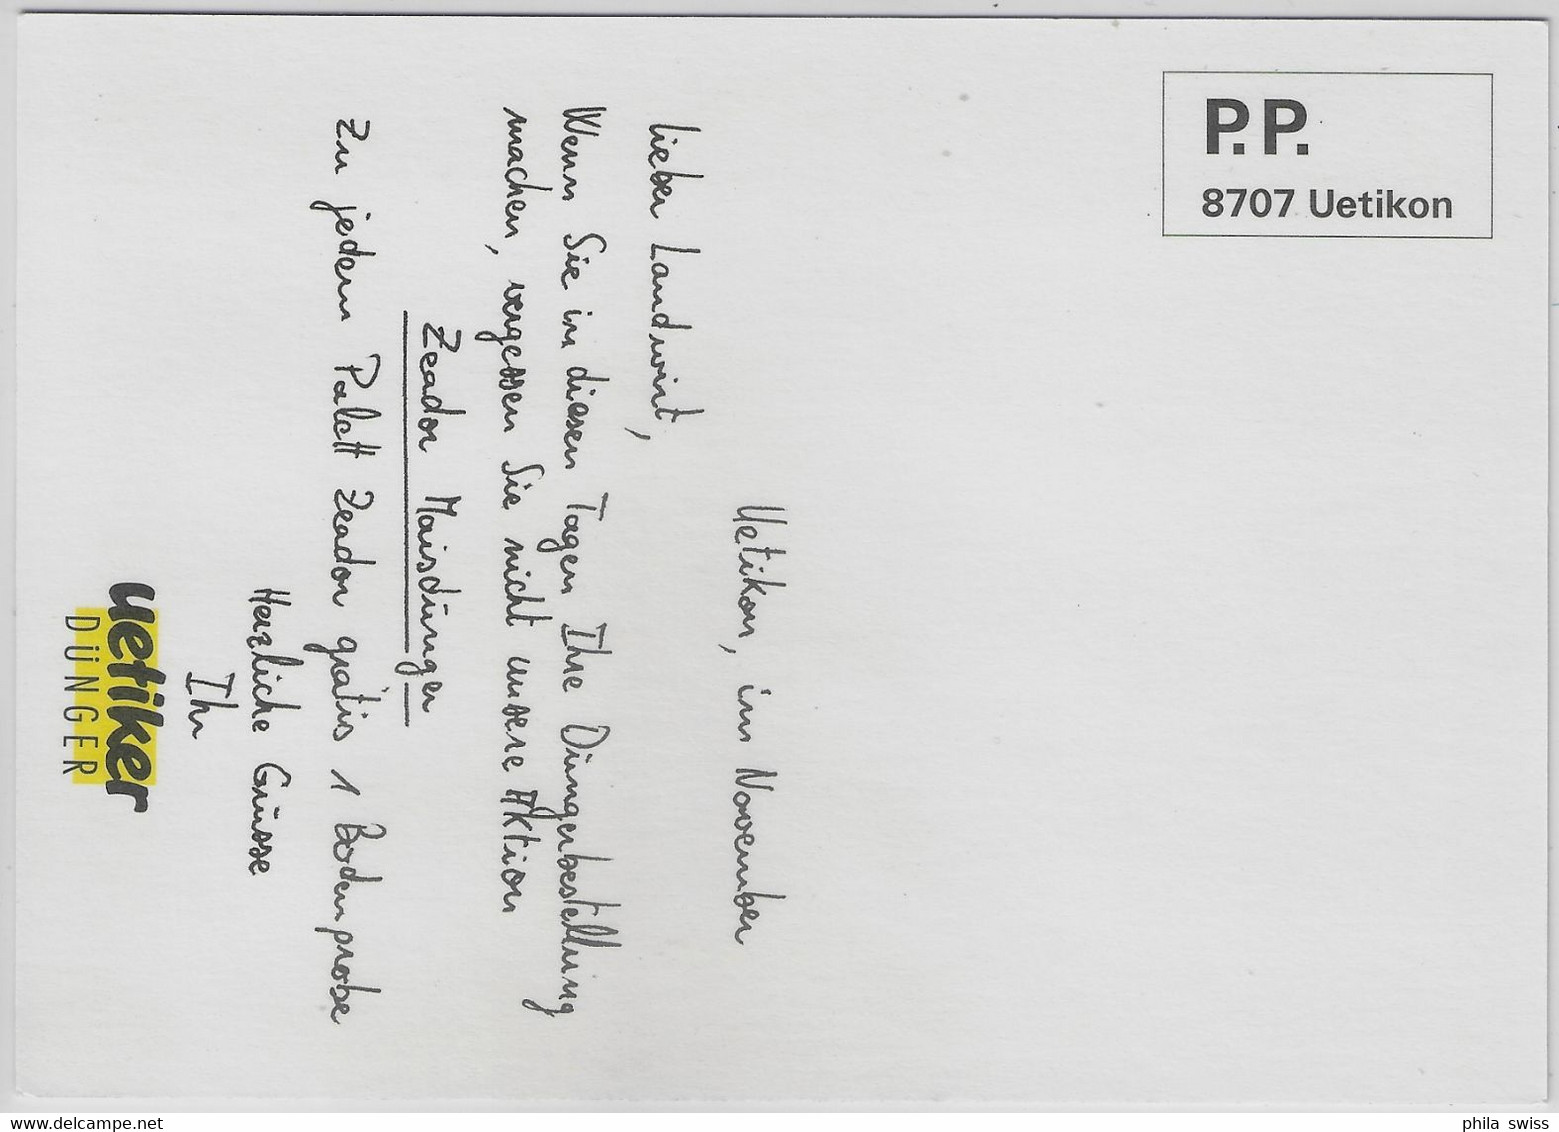 P.P.
8707 Uetikon
Uetikon, im November
lieber Landwirt,
Wenn Sie in diesen Tagen Ihre Düngerbestellung
machen, vergessen Sie nicht unsere Aktion
Zeador Maisdünger
Zu jedem Palett Zeador gratis 1 Bodenprobe
Herzliche Grüsse
Ihr
uetiker
DÜNGER
phila swiss